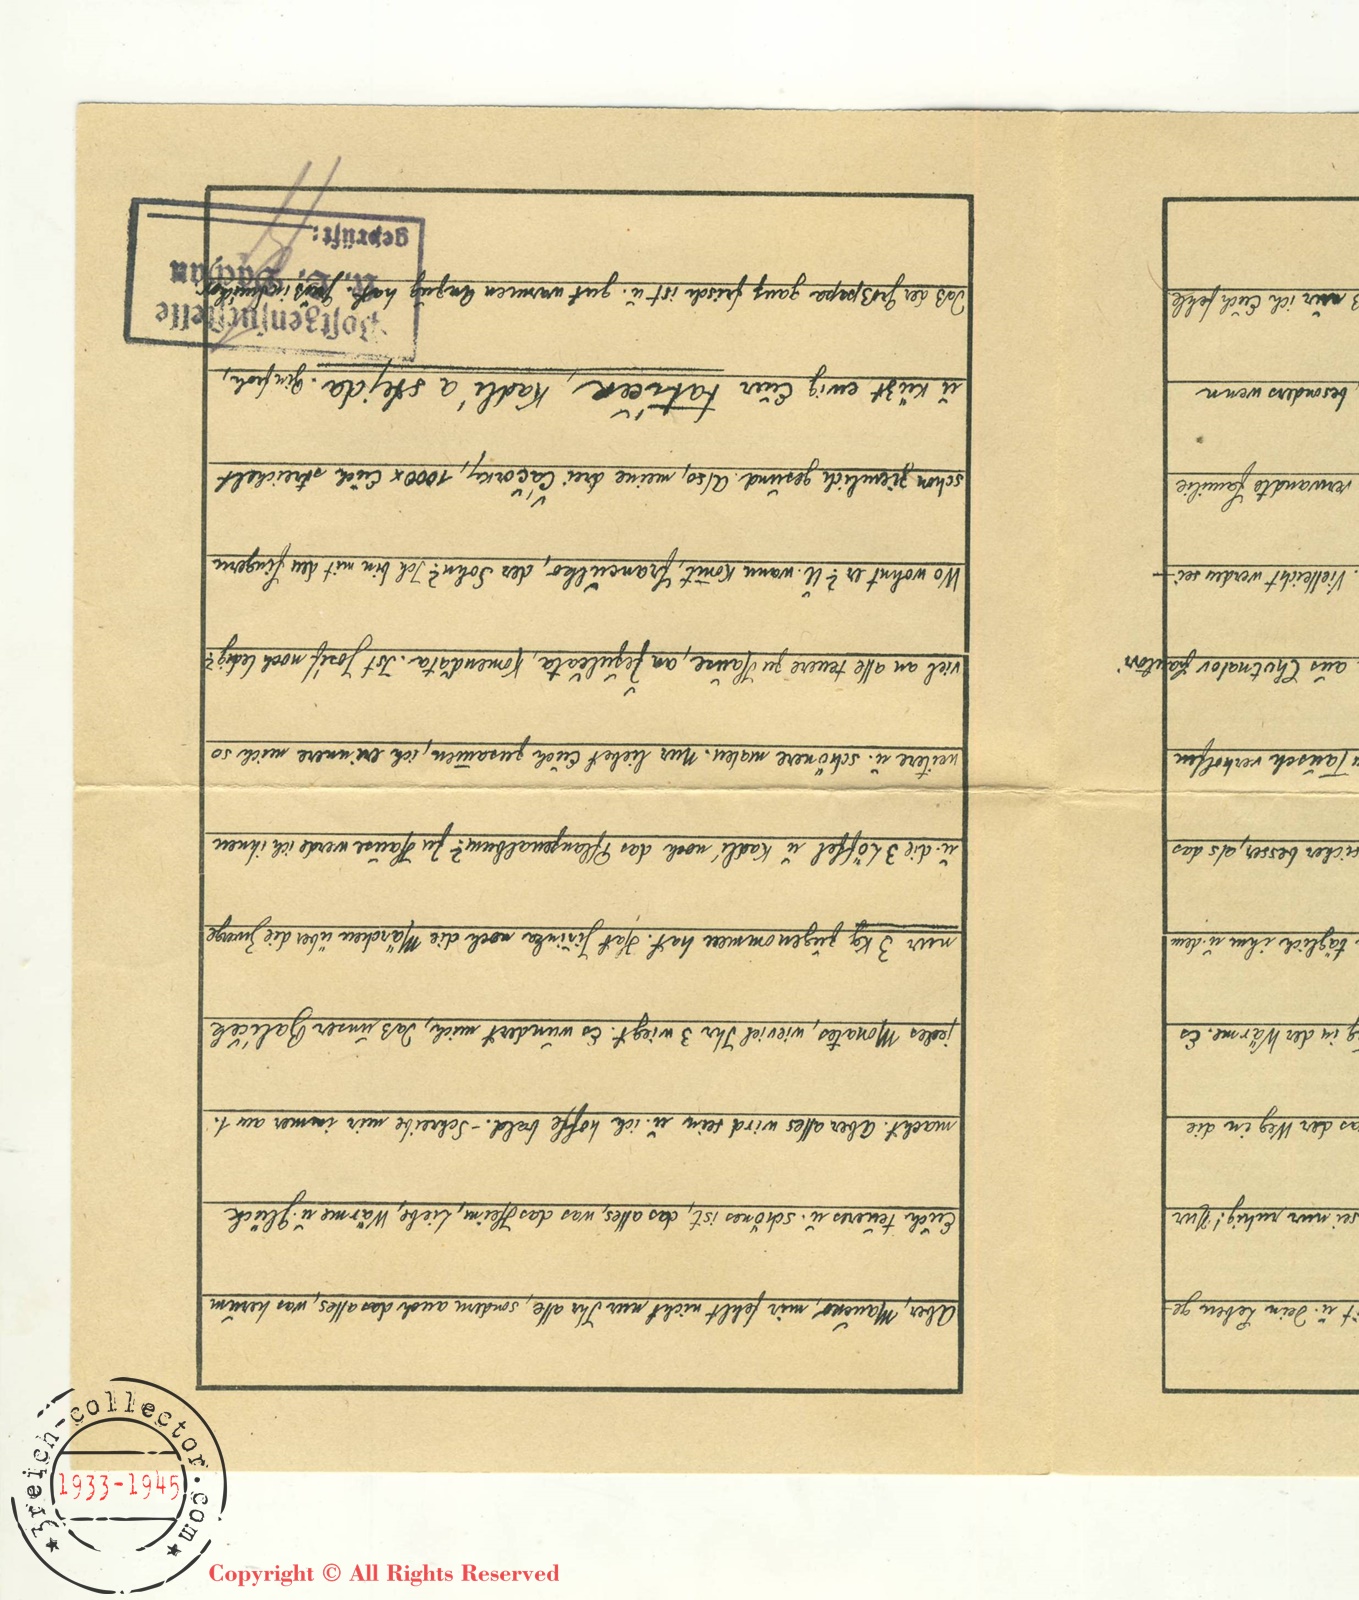 u. Dein Leben ge-
sei nur ruhig! Nur
der Weg in die
in der Wärme. Es
täglich ihm u. dem
sicher besser, als das
Tausch verholfen
aus Chotnalov
. Vielleicht werden sei-
verwandte Familie
, besonders wenn
nur ich Euch fehle
Aber, mir fehlt nicht nur Ihr alle, sondern auch das alles, was herum
Euch teueres u. schönes ist, das alles, was das Heim, Liebe, Wärme u. Glück
macht. Aber alles wird sein u. ich hoffe bald. - Schreibe mir immer am 1.
jedes Monates, wieviel Ihr 3 wiegt. Es wundert mich, daß unser Baliček
nur 3 kg zugenommen hat. Hat Jiřinka noch die Märchen über die Zwerge
u. die 3 Löffel u Kadlí noch das Pflanzenalbum? Zu Hause werde ich ihnen
weitere u. schönere malen. Nur liebet Euch zusammen, ich erinnere mich so
viel an alle teuere zu Hause, an Komendata. Ist Josef noch ledig?
Wo wohnt er? U. wann kommt, der Sohn? Ich bin mit den Fingern
schon ziemlich gesund. Also, meine drei Čačorky, 1000x Euch streichelt
u küßt ewig Euer tatíček, Kadlí a stejda. Bin froh,
Daß der Großpapa ganz frisch ist u. gut warmen Anzug hat.
Postzensurstelle
K. L. Dachau
geprüft:
3reich-collector.com
1933-1945
Copyright © All Rights Reserved